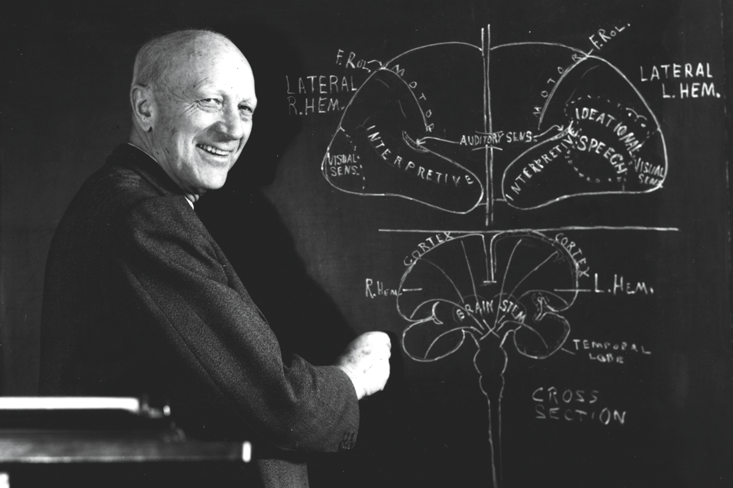 F.ROL.
MOTOR
LATERAL
R.HEM.
VISUAL
SENS.
INTERPRETIV
AUDITORY SENS.
F.ROL.
MOTOR
LATERAL
L.HEM.
IDEATIONAL
SPEECH
INTERPRETIV
VISUAL
SENS.
CORTEX
CORTEX
R.HEM.
L.HEM.
BRAIN STEM
TEMPORAL
LOBE
CROSS
SECTION